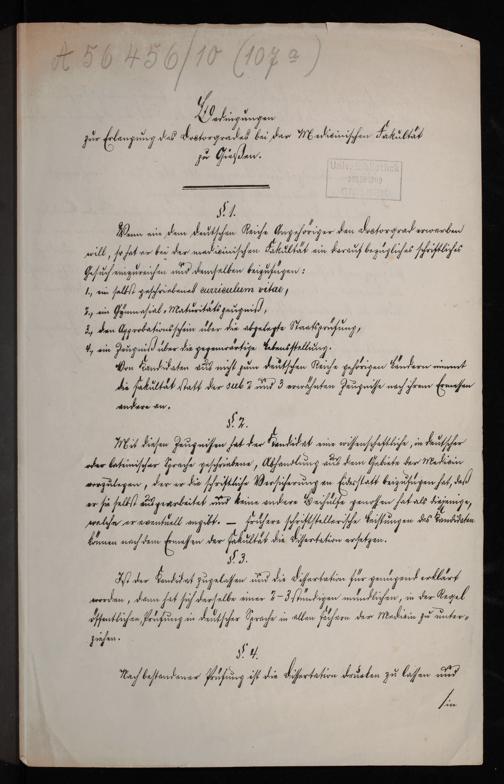 A 56 456/10 (107a)
Bedingungen
zur Erlangung des Doctorgrades bei der Medicinischen Fakultät
zu Gießen.
§. 1.
Wenn ein dem deutschen Reiche Angehöriger den Doctorgrad erwerben
will, so hat er bei der medicinischen Fakultät ein darauf bezügliches schriftliches
Gesuch einzureichen und demselben beizufügen:
1, ein selbst geschriebenes curriculum vitae,
2, ein Gymnasial-Maturitätszeugniß,
3, den Approbationsschein über die abgelegte Staatsprüfung,
4, ein Zeugniß über die gegenwärtige Lebensstellung.
Von Kandidaten aus nicht zum deutschen Reiche gehörigen Ländern nimmt
die Fakultät statt der sub 2 und 3 erwähnten Zeugnisse nach ihrem Ermessen
andere an.
§. 2.
Mit diesen Zeugnißen hat der Kandidat eine wissenschaftliche, in deutscher
oder lateinischer Sprache geschriebene, Abhandlung aus dem Gebiete der Medicin
vorzulegen, der er die schriftliche Versicherung an Eidesstatt beizufügen hat, daß
er sie selbst ausgearbeitet und keine andere Beihülfe genossen hat als diejenige,
welche er eventuell angibt. — Frühere schriftstellerische Leistungen des Kandidaten
können nach dem Ermessen der Fakultät die Dissertation ersetzen.
§. 3.
Ist der Kandidat zugelassen und die Dissertation für genügend erklärt
worden, dann hat sich derselbe einer 2-3 stündigen mündlichen, in der Regel
öffentlichen, Prüfung in deutscher Sprache in allen Fächern der Medicin zu unter-
ziehen.
§. 4.
Nach bestandener Prüfung ist die Dissertation drucken zu lassen und
/in